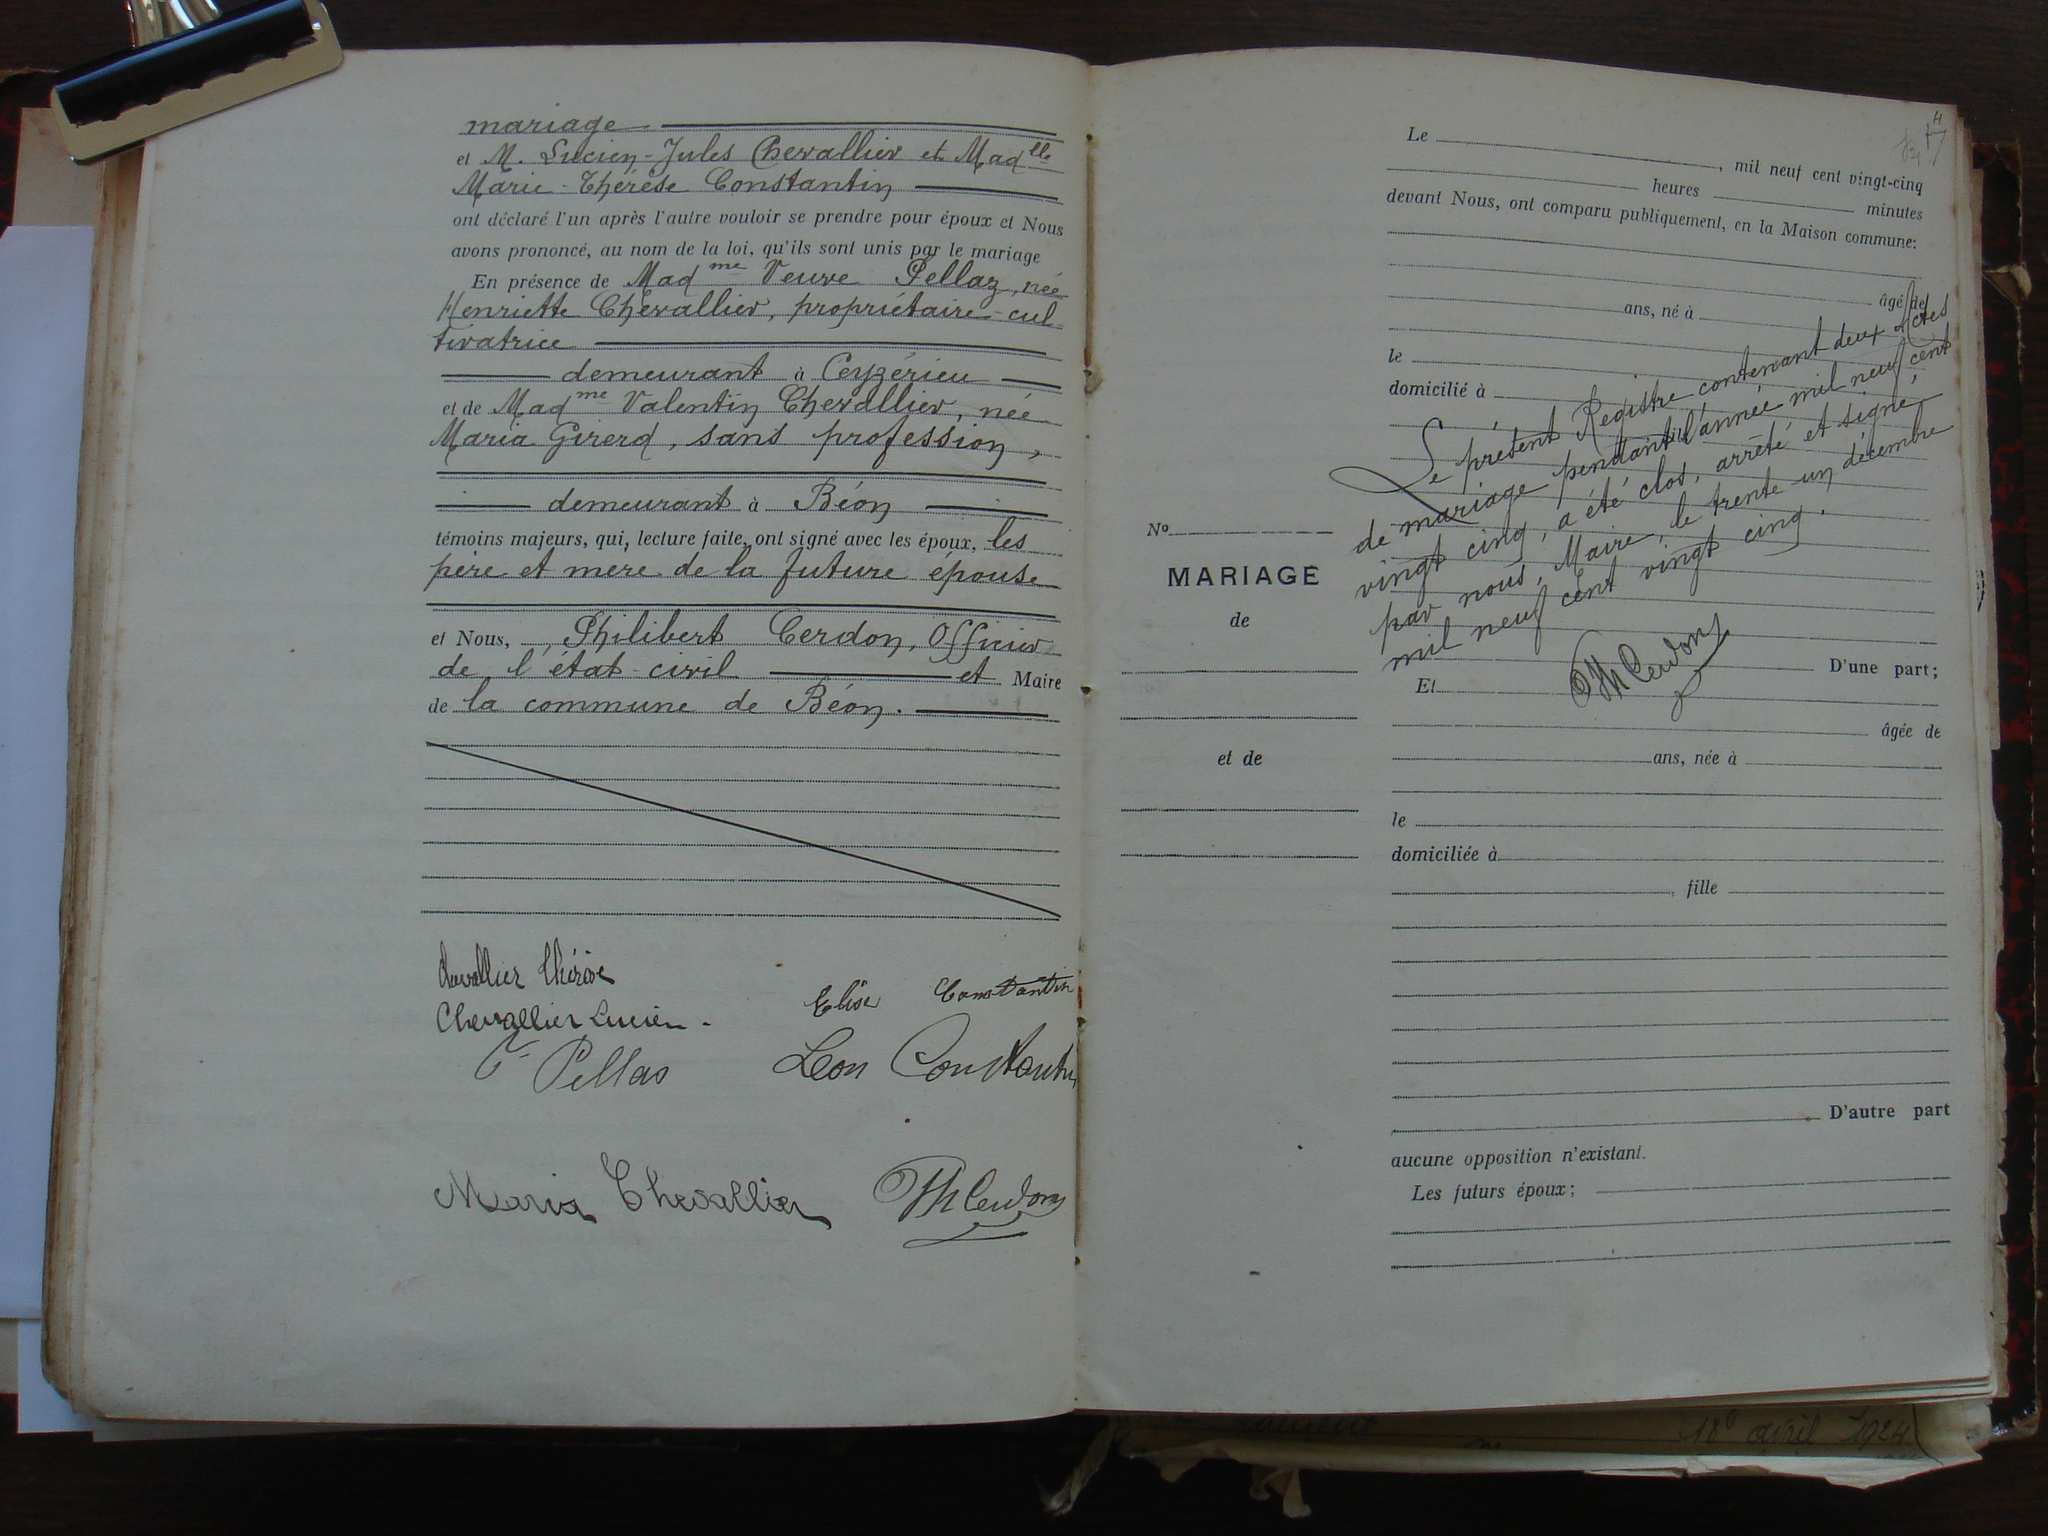 mariage
et M. Lucien-Jules Chevallier et Madlle
Marie-Thérèse Constantin
ont déclaré l'un après l'autre vouloir se prendre pour époux et Nous
avons prononcé, au nom de la loi, qu'ils sont unis par le mariage
En présence de Madme Veuve Pellaz, née
Henriette Chevallier, propriétaire-cul
tivatrice
demeurant à Ceyzérieu
et de Madme Valentin Chevallier, née
Maria Girerd, sans profession,
demeurant à Béon
témoins majeurs, qui, lecture faite, ont signé avec les époux, les
père et mère de la future épouse
et Nous, Philibert Cerdon, Officier
de l'état-civil et Maire
de la commune de Béon.
Chevallier Thérèse
Chevallier Lucien.
Elise Constantin
Pellas
Leon Constantin
Maria Chevallier
Ph Cerdon
Le , mil neuf cent vingt-cinq
heures minutes
devant Nous, ont comparu publiquement, en la Maison commune:
âgé de
ans, né à
le
domicilié à
Le présent Registre contenant deux Actes
de mariage pendant l'année mil neuf cent
vingt cinq, a été clos, arrêté et signé,
par nous, Maire, le trente un décembre
mil neuf cent vingt cinq.
Ph Cerdon
No
MARIAGE
de
et de
D'une part;
Et
âgée de
ans, née à
le
domiciliée à
, fille
D'autre part
aucune opposition n'existant.
Les futurs époux;
avril 1924